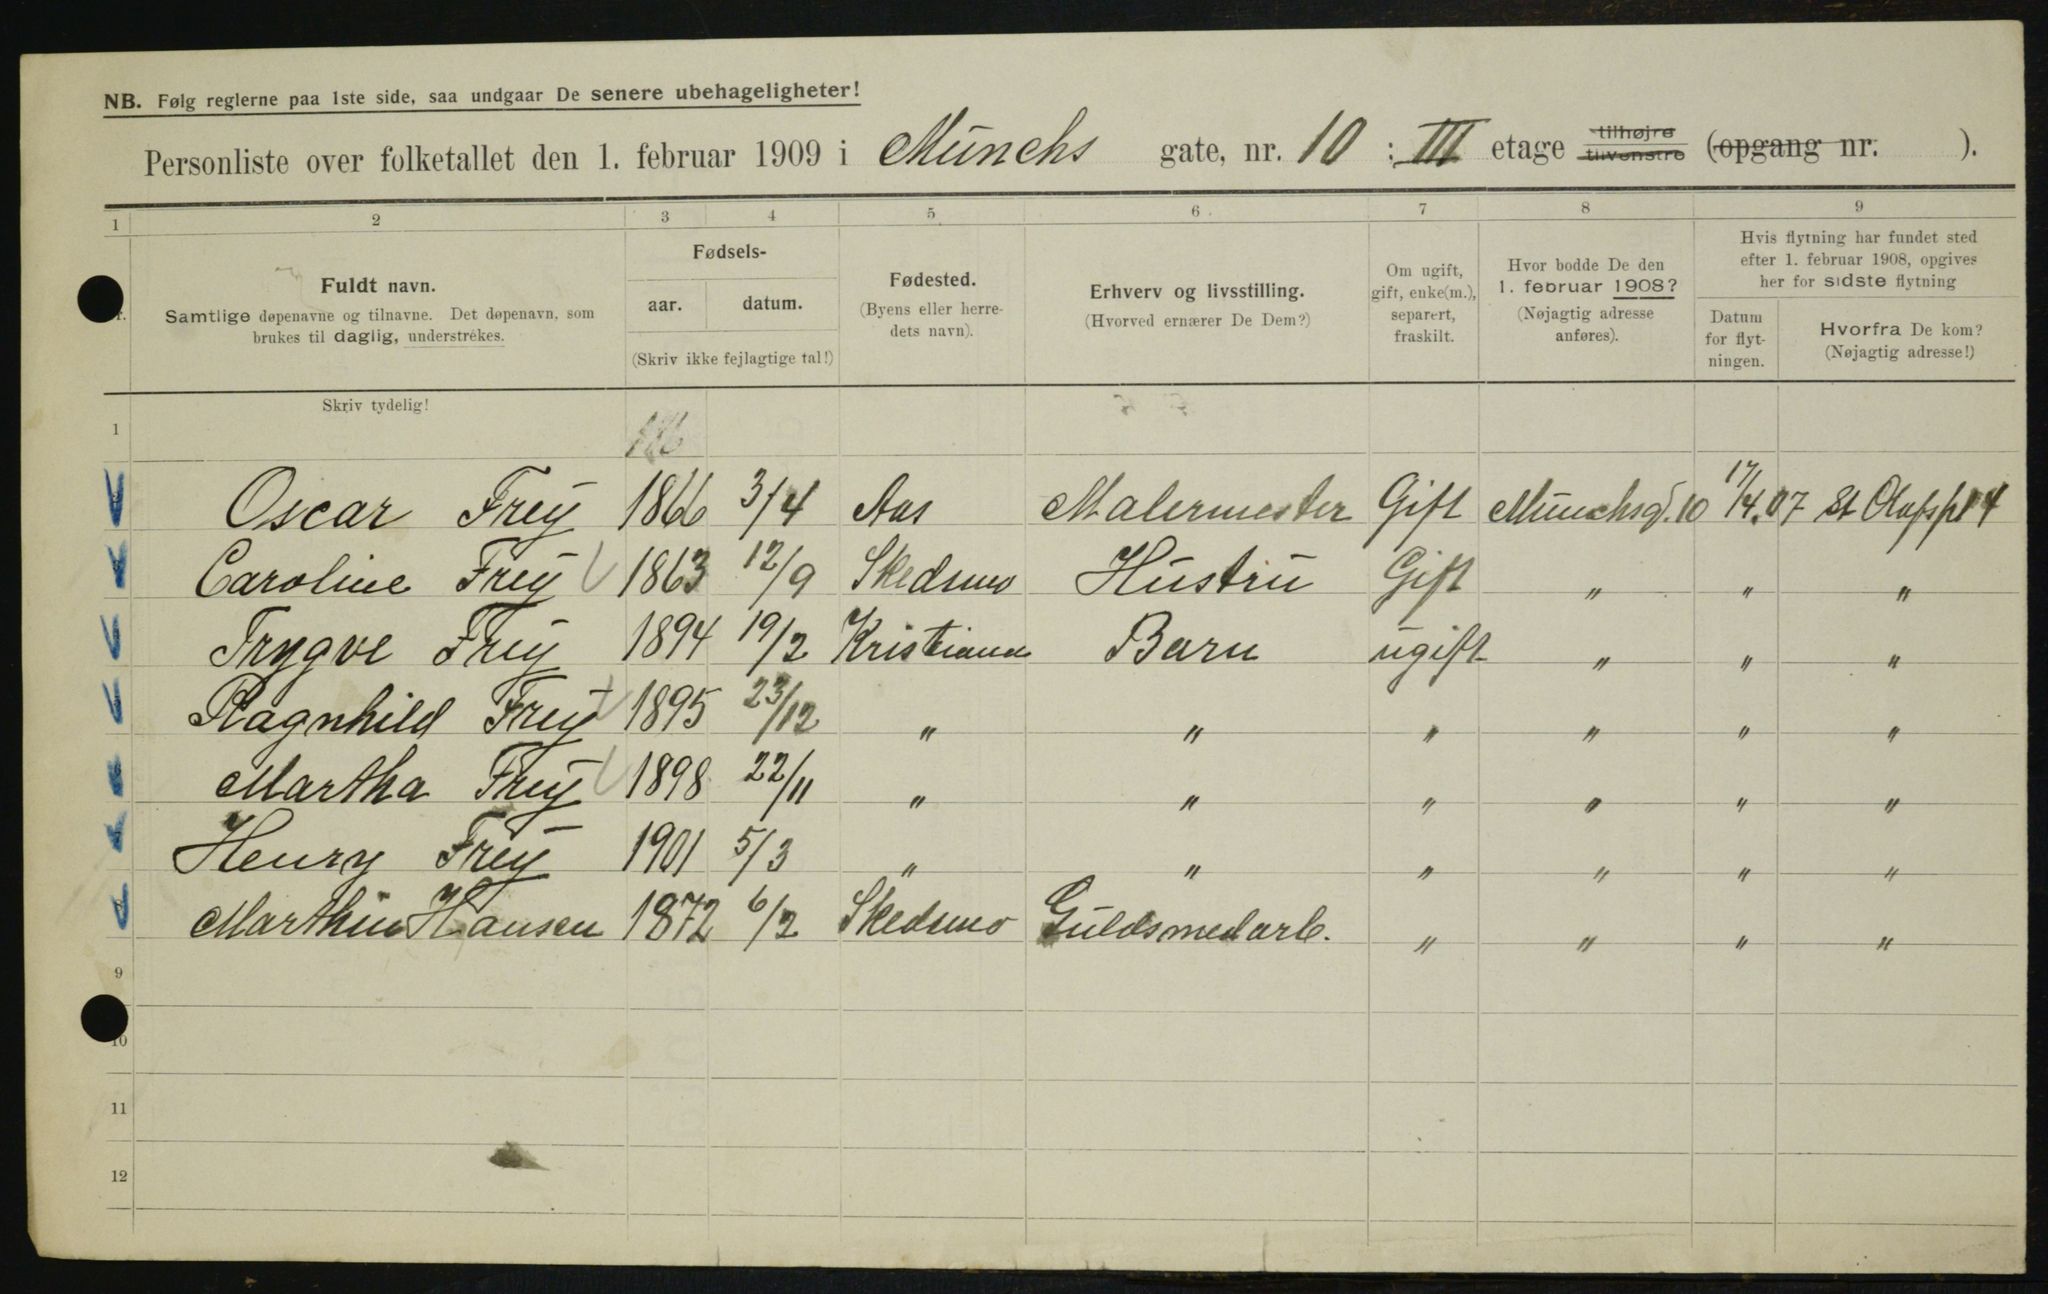 NB. Følg reglerne paa 1ste side, saa undgaar De senere ubehageligheter!
Personliste over folketallet den 1. februar 1909 i Münchs gate, nr. 10 : III etage tilhøjre tilvenstre (opgang nr. ).
1 2 3 4 5 6 7 8 9
Fuldt navn.
Samtlige døpenavne og tilnavne. Det døpenavn, som
brukes til daglig, understrekes.
Fødsels-
aar. datum.
(Skriv ikke fejlagtige tal!)
Fødested.
(Byens eller herre-
dets navn).
Erhverv og livsstilling.
(Hvorved ernærer De Dem?)
Om ugift,
gift, enke(m.),
separert,
fraskilt.
Hvor bodde De den
1. februar 1908?
(Nøjagtig adresse
anføres).
Hvis flytning har fundet sted
efter 1. februar 1908, opgives
her for sidste flytning
Datum
for flyt-
ningen.
Hvorfra De kom?
(Nøjagtig adresse!)
Skriv tydelig!
1
Oscar Frey 1866 3/4 Aas Malermester Gift Münchsg. 10 17/4.07 St Olafspl 4
Caroline Frey 1863 12/9 Skedsmo Hustru Gift " " "
Trygve Frey 1894 19/2 Kristiania Barn ugift " " "
Ragnhild Frey 1895 23/12 " " " " " "
Martha Frey 1898 22/11 " " " " " "
Henry Frey 1901 5/3 " " " " " "
Marthin Hansen 1872 6/2 Skedsmo Guldsmedarb. " " " "
9
10
11
12